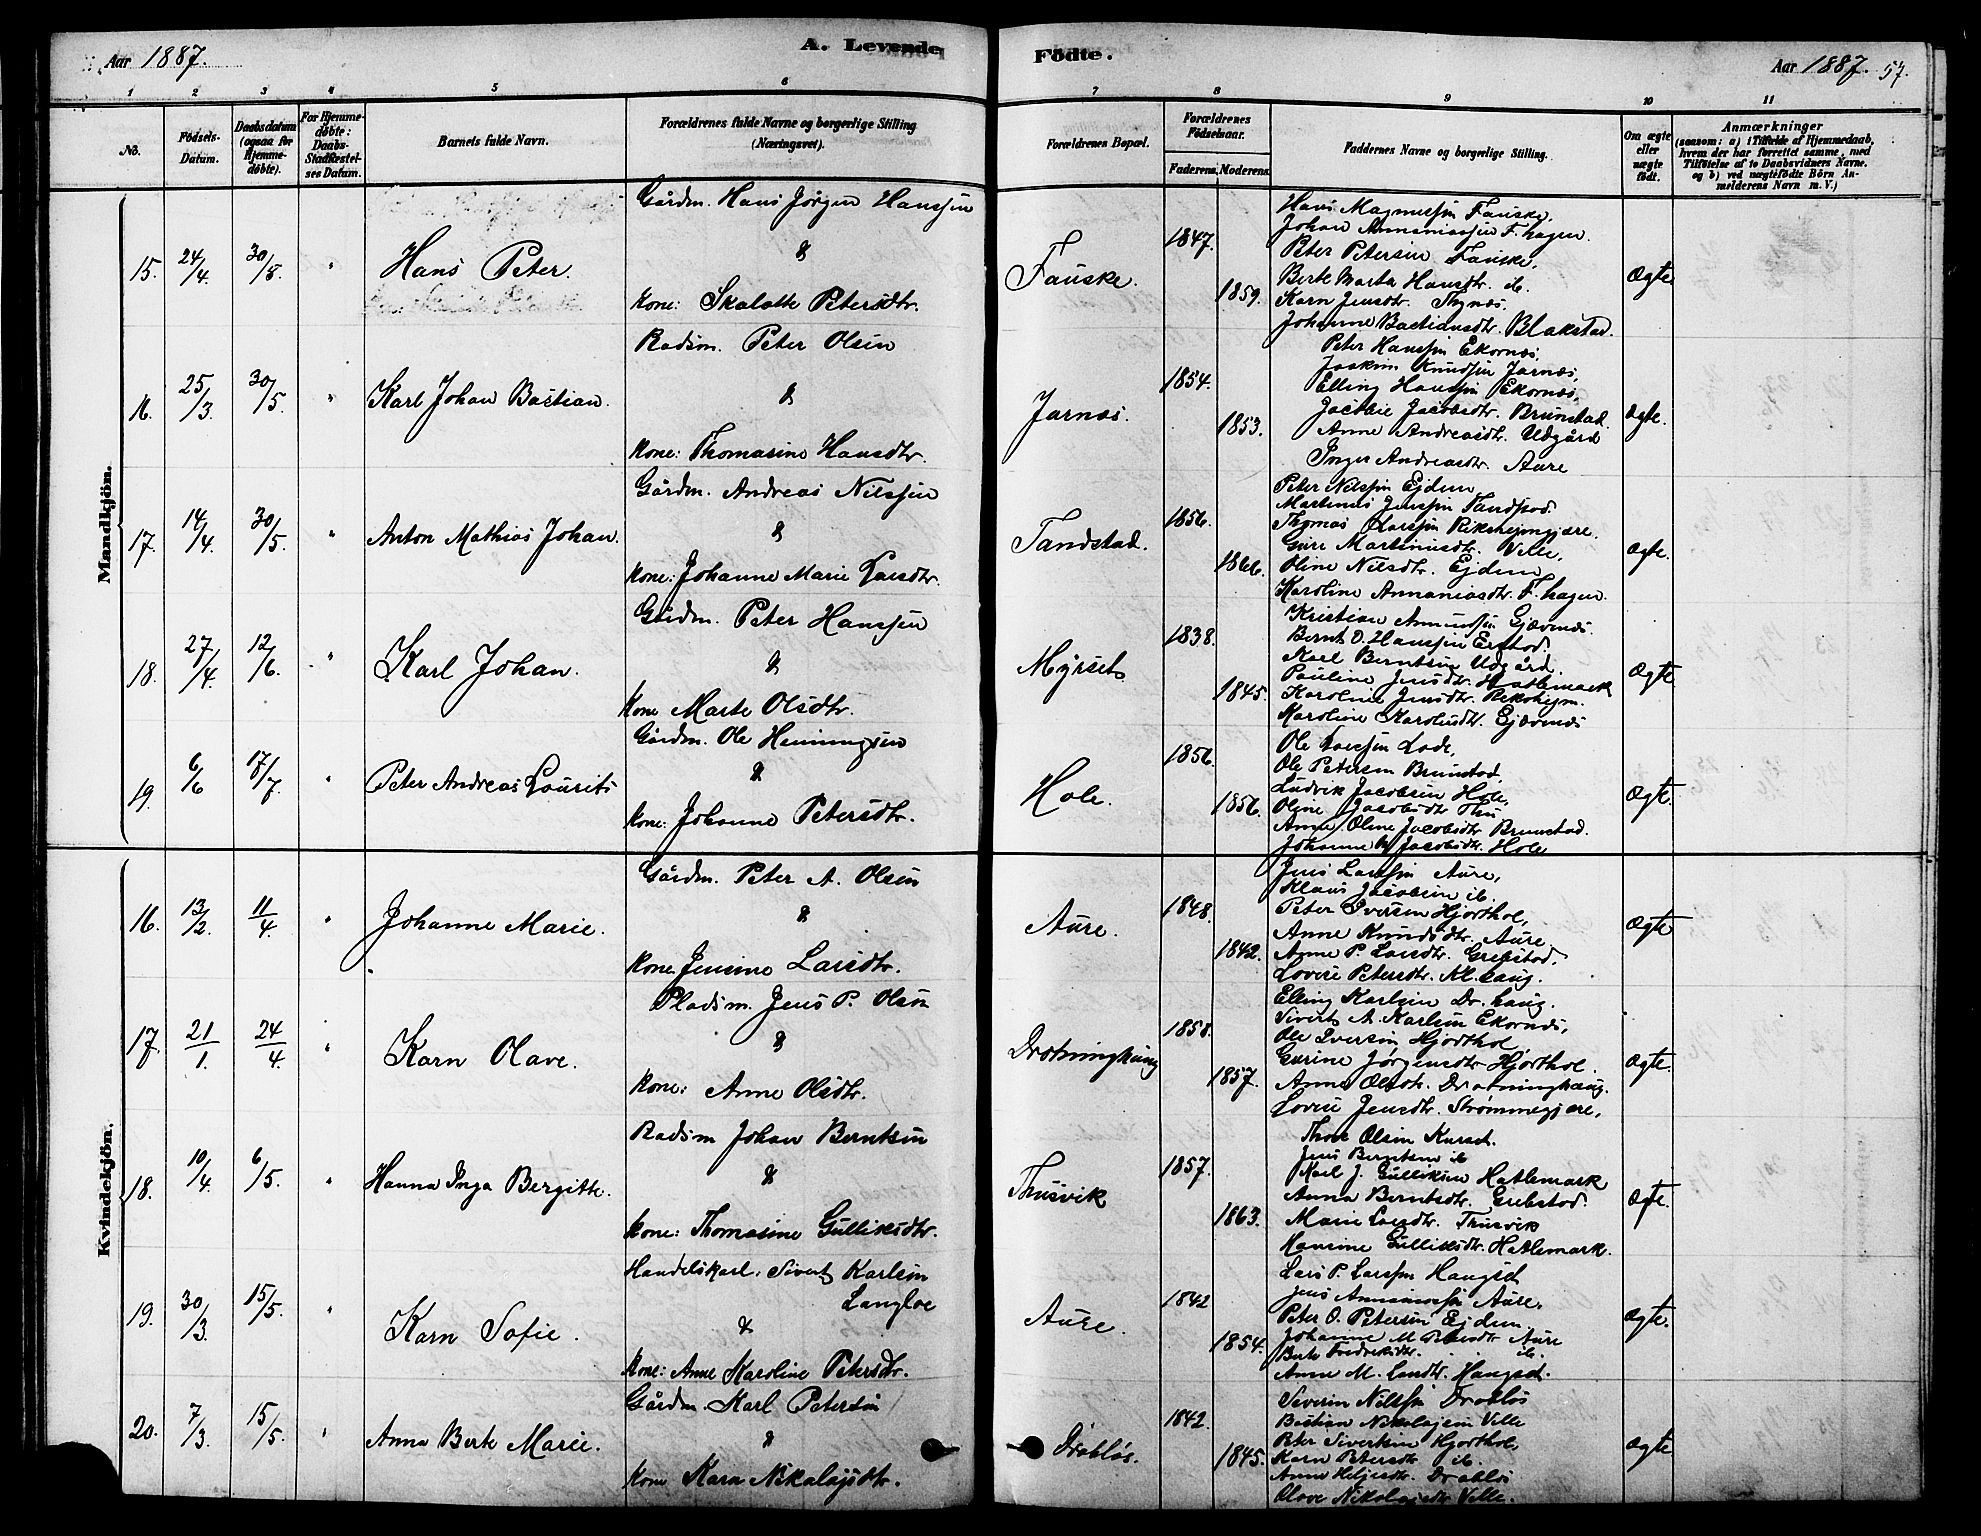 Aar 1887.
A. Levende
Födte.
Aar 1887. 57.
1 2 3 4 5 6 7 8 9 10 11
No.
Födsels-Datum.
Daabsdatum (ogsaa for Hjemme-döbte).
For Hjemme-döbte: Daabs-Stadfæstel-ses Datum.
Barnets fulde Navn.
Forældrenes fulde Navne og borgerlige Stilling (Næringsvei).
Forældrenes Bopæl.
Forældrenes Födselsaar.
Faderens. Moderens.
Faddernes Navne og borgerlige Stilling.
Om ægte eller uægte födt.
Anmærkninger
(saasom: a) i Tilfælde af Hjemmedaab, hvem der har forrettet samme, med Tilföielse af to Daabsvidners Navne. og b) ved uægtefödte Börn An-melderens Navn m. V.)
Mandkjön.
15. 24/4. 30/5. " Hans Peter.
Gårdm. Hans Jörgen Hanssen
&
kone: Skalotte Petersdtr.
Fauske. 1847. 1859.
Hans Magnussen Fauske.
Johan Annaniassen F.hagen.
Peter Petersen Fauske.
Berte Marta Hansdtr. ib.
Karn Jensdtr. Thynæs.
Johanne Bastiansdtr. Blakstad.
Ægte.
16. 25/3. 30/5. " Karl Johan Bastian.
Radsm. Peter Olsen
&
kone: Thomasine Hansdtr.
Jarnæs. 1854. 1853.
Peter Hanssen Ekornæs,
Joakim Knudsen Jarnæs,
Elling Hanssen Ekornæs,
Jacobie Jacobsdtr. Brunstad.
Anne Andreasdtr. Udgård
Inger Andreasdtr. Aure
Ægte.
17. 14/4. 30/5. " Anton Mathias Johan.
Gårdm. Andreas Nilssen
&
kone: Johanne Marie Larsdtr.
Tandstad. 1856. 1866.
Peter Nilssen Ejdem
Martinus Jenssen Tandstad.
Thomas Larssen Rikshejmgjære.
Guri Martinusdtr. Velle,
Oline Nilsdtr. Ejdem
Karoline Annaniasdtr. F.hagen.
Ægte.
18. 27/4. 12/6. " Karl Johan.
Gårdm. Peter Hanssen
&
kone Marte Olsdtr.
Myrset. 1838. 1845.
Kristian Amundsen Gjævenæs.
Bernt O. Hanssen Erstad.
Karl Berntsen Udgård
Pauline Jensdtr. Hatlemark
Karoline Jensdtr. Rikshejm.
Karoline Karolusdtr. Gjævenæs
Ægte
19. 6/6 17/7. " Peter Andreas Lourits
Gårdm. Ole Henningsen
&
kone: Johanne Petersdtr.
Hole. 1856. 1856.
Ole Larssen Lade,
Ole Petersen Brunstad,
Ludvik Jacobsen Hole,
Oline Jacobsdtr. Thu
Anne Oline Jacobsdtr. Brunstad.
Johanne Jacobsdtr. Hole
Ægte.
Kvindekjön.
16. 13/2. 11/4. " Johanne Marie.
Gårdm. Peter A. Olsen
&
kone Jensine Larsdtr.
Aure. 1848. 1842.
Jens Larssen Aure,
Klaus Jacobsen ib.
Peter Iversen Hjorthol,
Anne Knudsdtr. Aure
Anne P. Larsdtr. Grebstad.
Lovise Petersdtr. M.haug.
Ægte
17. 21/1. 24/4. " Karn Olave.
Pladsm. Jens P. Olsen
&
kone: Anne Olsdtr.
Drotninghaug 1858. 1857.
Elling Karlsen Dr. haug.
Sivert A. Karlsen Ekornæs,
Ole Iversen Hjorthol
Gurine Jørgensdtr Hjorthol.
Anne Olsdtr. Drotninghaug.
Lovise Jensdtr. Strømmegjære,
Ægte.
18. 10/4. 6/5. " Hanna Inga Bergitte.
Radsm Johan Berntsen
&
kone: Thomasine Gulliksdtr.
Thusvik 1857. 1863.
Thore Olsen Kurset.
Jens Berntsen ib
Karl J. Gulliksen Hatlemark
Anna Berntsdtr. Grebstad.
Marie Larsdtr. Thusvik
Hansine Gulliksdtr. Hatlemark.
Ægte.
19. 30/3. 15/5. " Karn Sofie.
Handelskarl. Sivert Karlsen
Langloe
&
kone: Anne Karoline Petersdtr.
Aure. 1842 1854.
Lars P. Larssen Haugset
Jens Annaniassen Aure,
Peter O. Petersen Ejdem.
Johanne M. Petersdtr Aure
Berte Fredriksdtr. ib.
Anne M. Larsdtr. Haugset.
Ægte.
20. 7/3. 15/5. " Anna Berte Marie.
Gårdm. Karl Petersen
&
kone Karn Nikolajsdtr.
Drabløs. 1842. 1845.
Severin Nilssen Drabløs
Bastian Nikolajsen Velle
Peter Sivertsen Hjorthol,
Karn Petersdtr ib.
Anne Heljesdtr. Drabløs
Olave Nikolajsdtr Velle.
Ægte